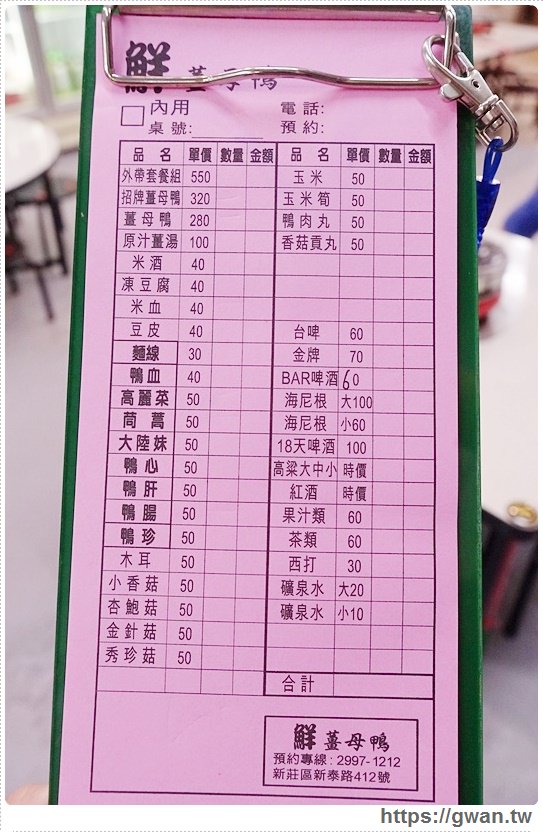 鮮 薑母鴨
內用 電話:
桌號: 預約:
品名 單價 數量 金額 品名 單價 數量 金額
外帶套餐組 550 玉米 50
招牌薑母鴨 320 玉米筍 50
薑母鴨 280 鴨肉丸 50
原汁薑湯 100 香菇貢丸 50
米酒 40
凍豆腐 40
米血 40
豆皮 40 台啤 60
麵線 30 金牌 70
鴨血 40 BAR啤酒 60
高麗菜 50 海尼根 大100
茼蒿 50 海尼根 小60
大陸妹 50 18天啤酒 100
鴨心 50 高粱大中小 時價
鴨肝 50 紅酒 時價
鴨腸 50 果汁類 60
鴨珍 50 茶類 60
木耳 50 西打 30
小香菇 50 礦泉水 大20
杏鮑菇 50 礦泉水 小10
金針菇 50
秀珍菇 50
合計
鮮 薑母鴨
預約專線:2997-1212
新莊區新泰路412號
https://gwan.tw